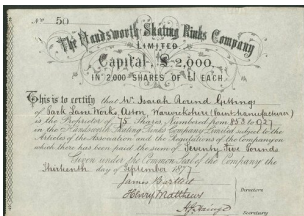 No. 50
The Handsworth Skating Rinks Company
LIMITED
Capital, £2,000.
IN 2,000 SHARES OF £1 EACH.
This is to certify that Mr. Isaiah Round Gittings
of Park Farm Works, Aston, Warwickshire (Paint Manufacturer)
is the Proprietor of 75 Shares Numbered from 853 to 927
in the Handsworth Skating Rinks Company Limited subject to the
Articles of the Association and the Regulations of the Company on
which there has been paid the sum of Seventy Five Pounds
Given under the Common Seal of the Company the
Thirteenth day of September 1877
James Bartlett
Henry Matthews
Directors
Secretary